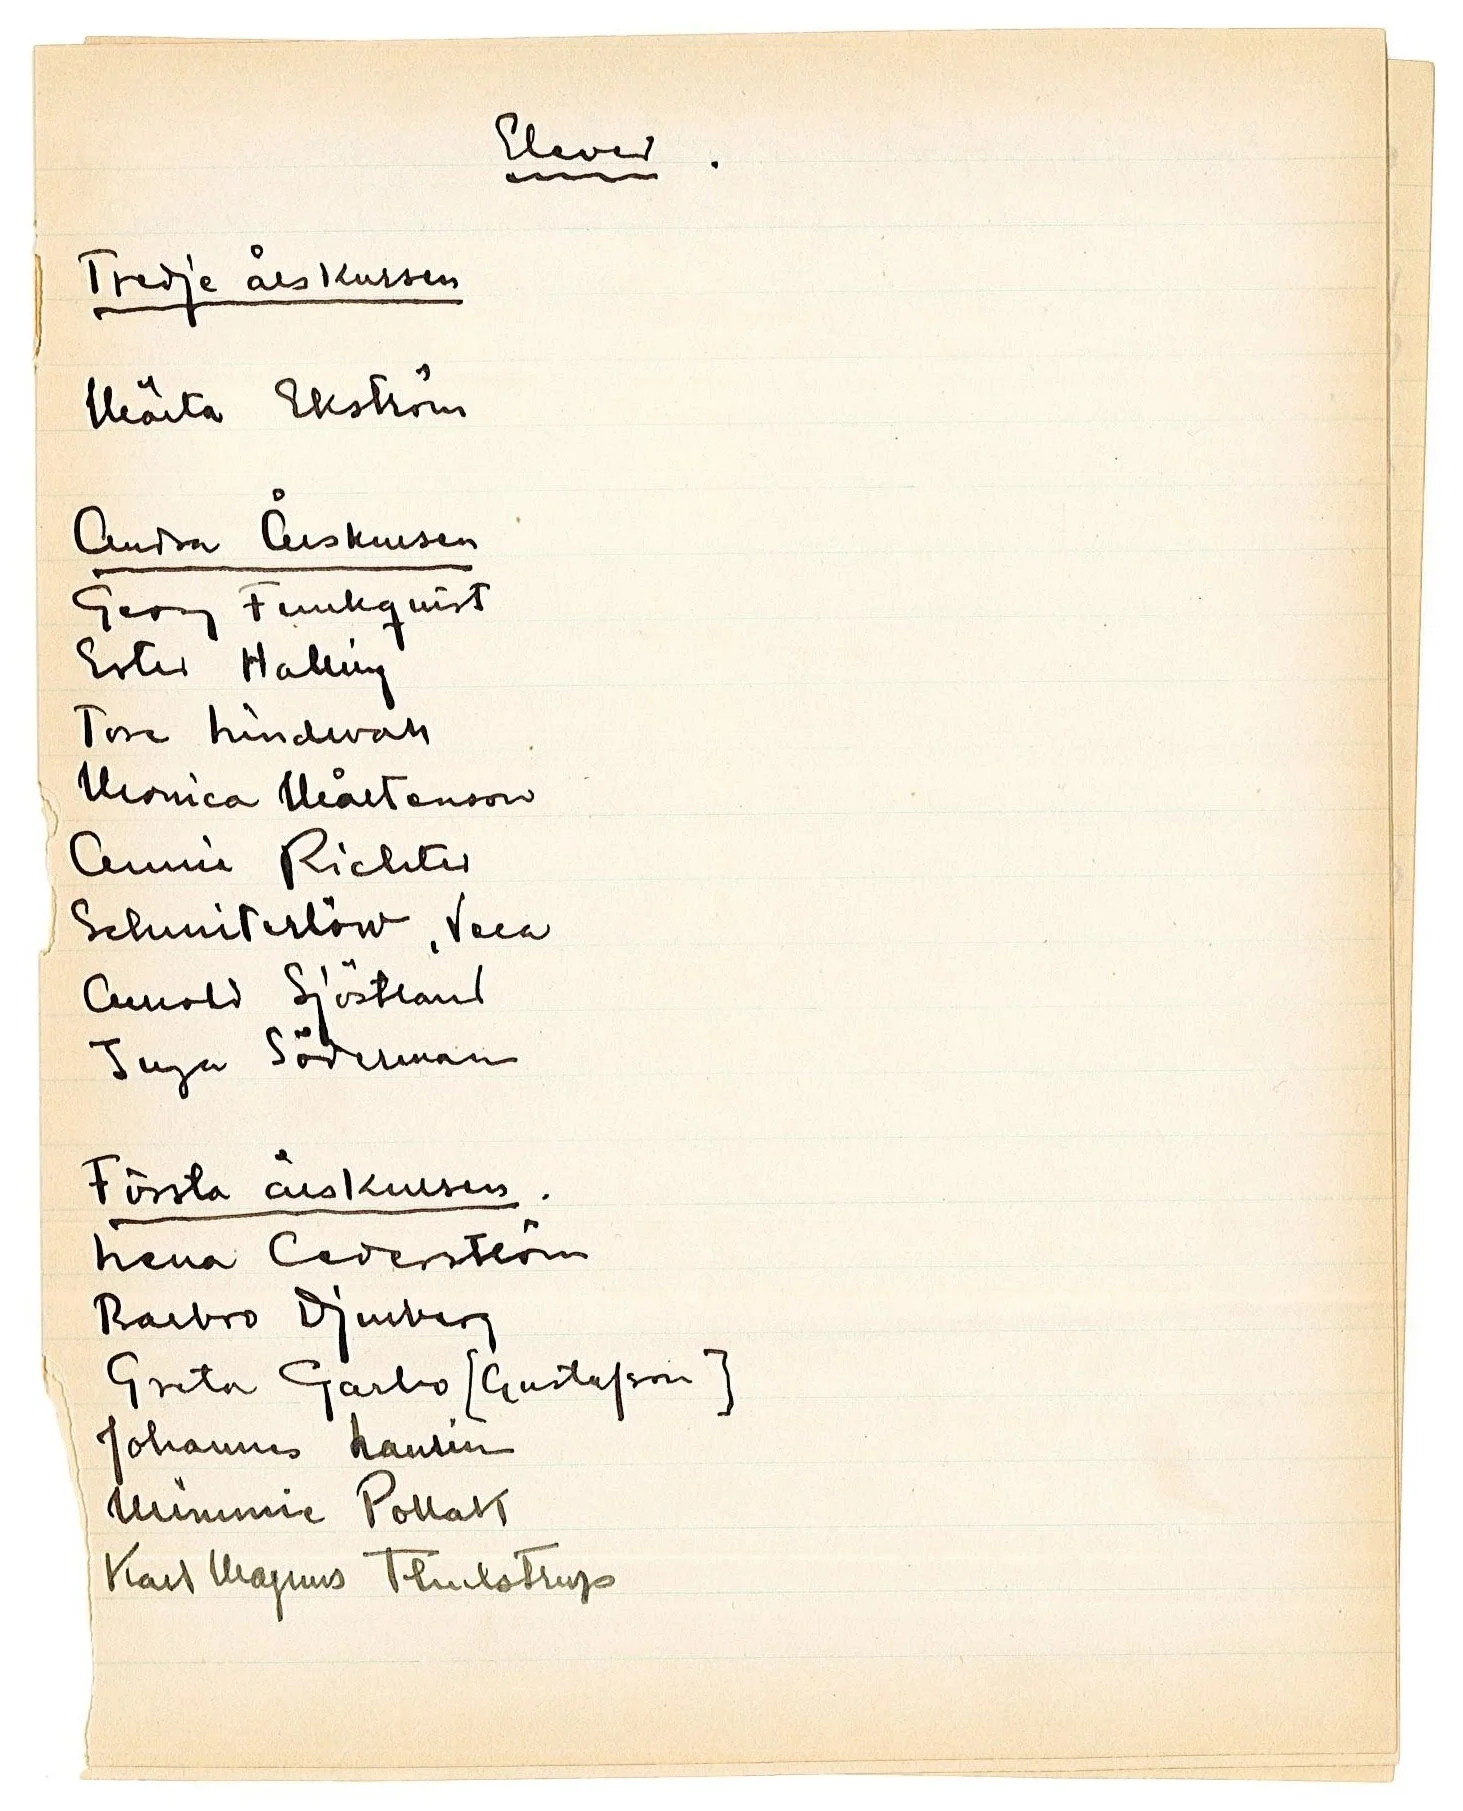 Elever.
Tredje årskursen
Märta Ekström
Andra Årskursen
Georg Funkquist
Ester Halling
Tore Lindwall
Monica Mårtenson
Annie Richter
Schmiterlöw, Vera
Arnold Sjöstrand
Inga Söderman
Första årskursen.
Lena Cederström
Barbro Djurberg
Greta Garbo [Gustafson]
Johannes
Mimmie Pollak
Karl Magnus Thulstrup